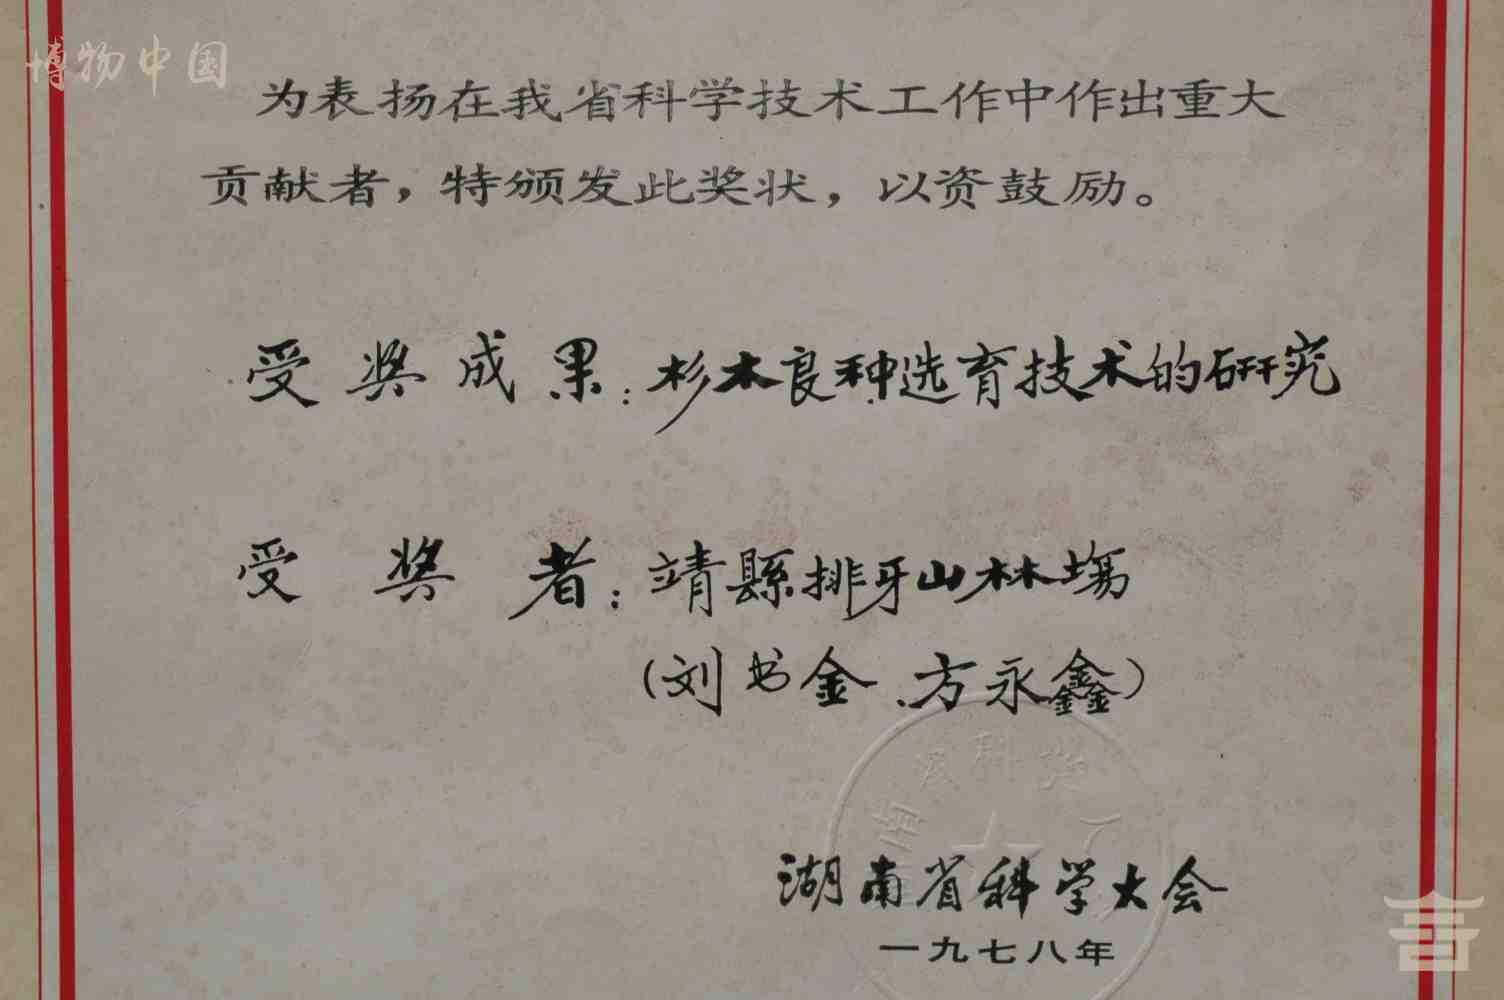 博物中国
为表扬在我省科学技术工作中作出重大
贡献者，特颁发此奖状，以资鼓励。
受奖成果：杉木良种选育技术的研究
受奖者：靖縣排牙山林場
（刘书金、方永鑫）
湖南省科学大会
一九七八年